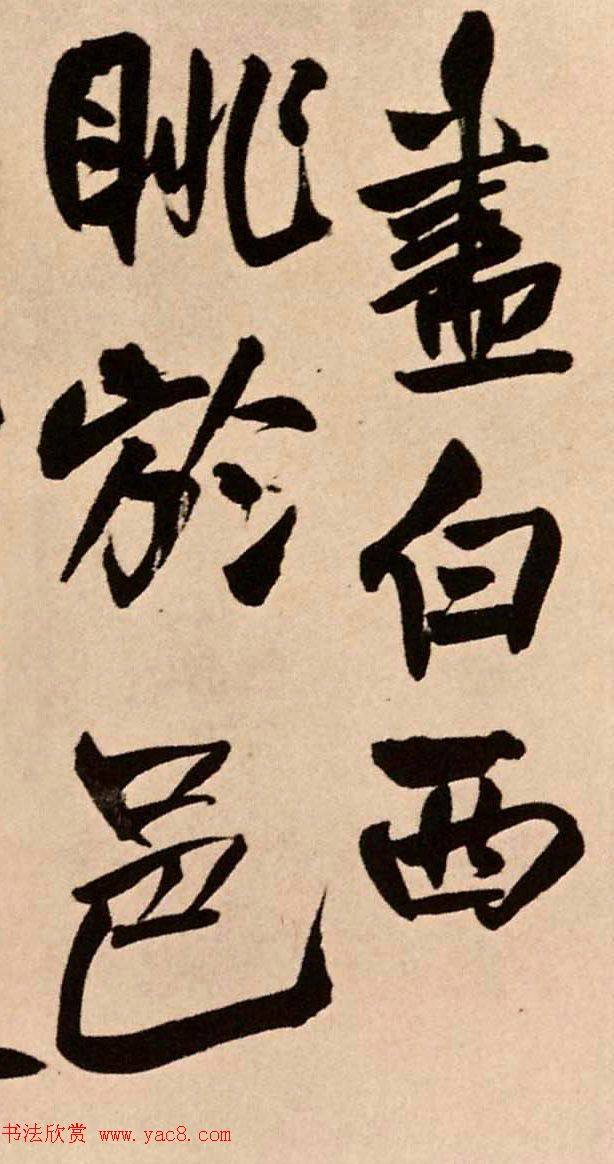 盡白西
眺於邑
书法欣赏 www.yac8.com